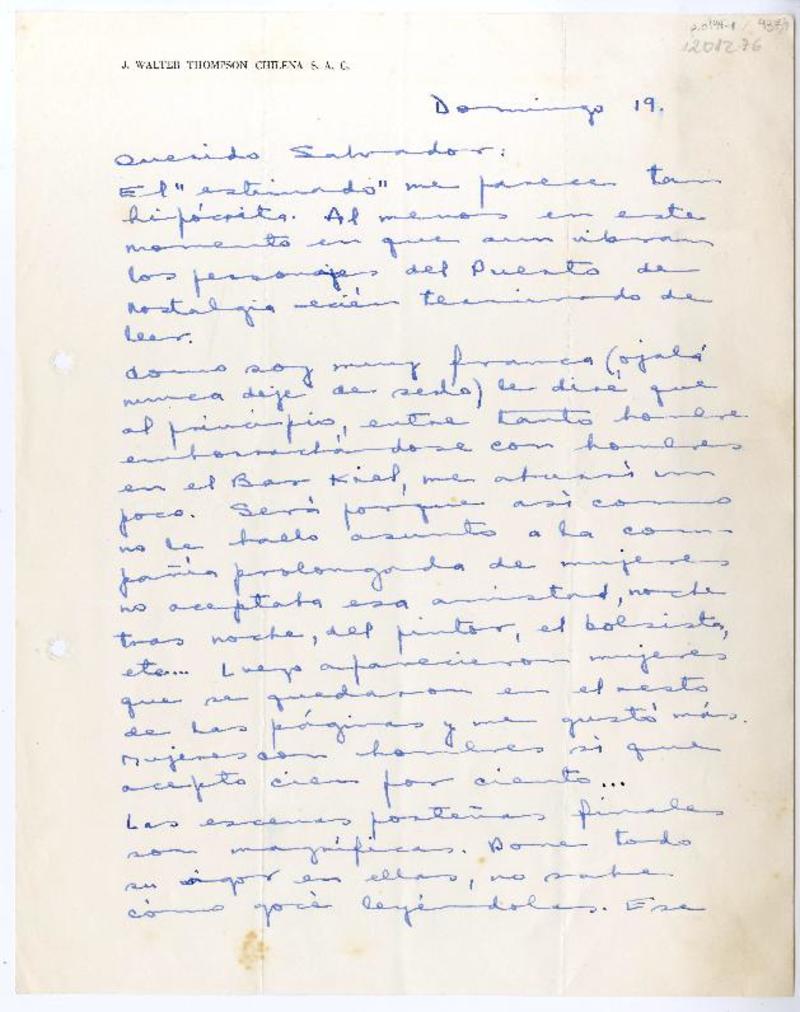 1201276
J. WALTER THOMPSON CHILENA S. A. C.
Domingo 19.
Querido Salvador:
El "estimado" me parece tan
hipócrita. Al menos en este
momento en que aun vibran
los personajes del Puerto de
Nostalgia recién terminado de
leer.
Como soy muy franca (ojalá
nunca deje de serlo) le diré que
al principio, entre tanto hombre
emborrachándose con hombres
en el Bar Kiel, me aburrí un
poco. Será porque así como
no le hallo asunto a la com-
pañía prolongada de mujeres
no aceptaba esa amistad, noche
tras noche, del pintor, el bolsista,
etc... Luego aparecieron mujeres
que se quedaron en el resto
de las páginas y me gustó más.
Mujeres con hombres sí que
acepto cien por ciento...
Las escenas posteñas finales
son magníficas. Pone todo
su vigor en ellas, no sabe
cómo gocé leyéndolas. Ese